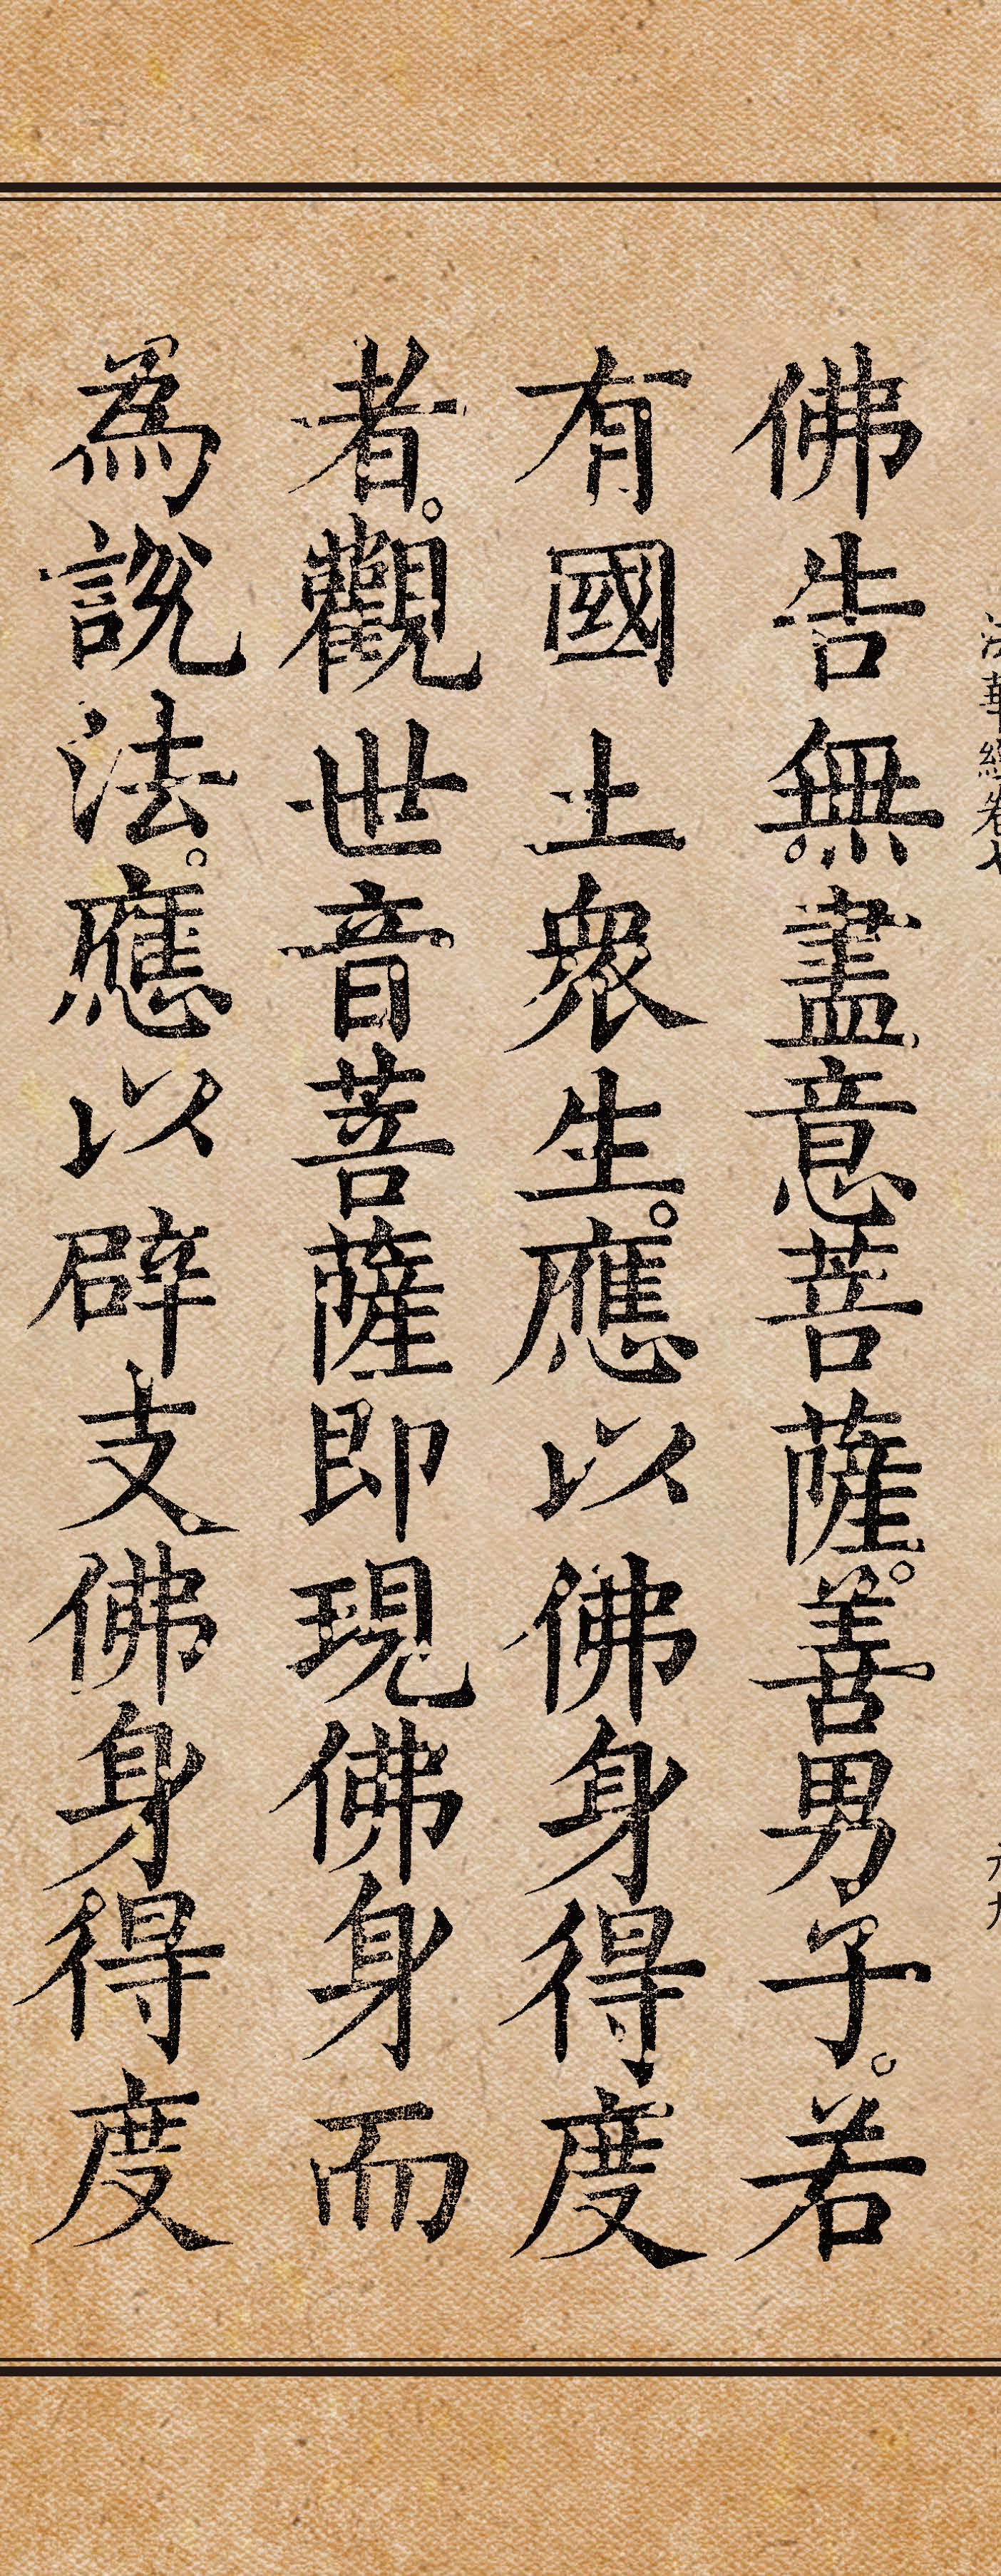 法華經卷七
佛告無盡意菩薩。善男子。若
有國土衆生。應以佛身得度
者。觀世音菩薩即現佛身而
為說法。應以辟支佛身得度